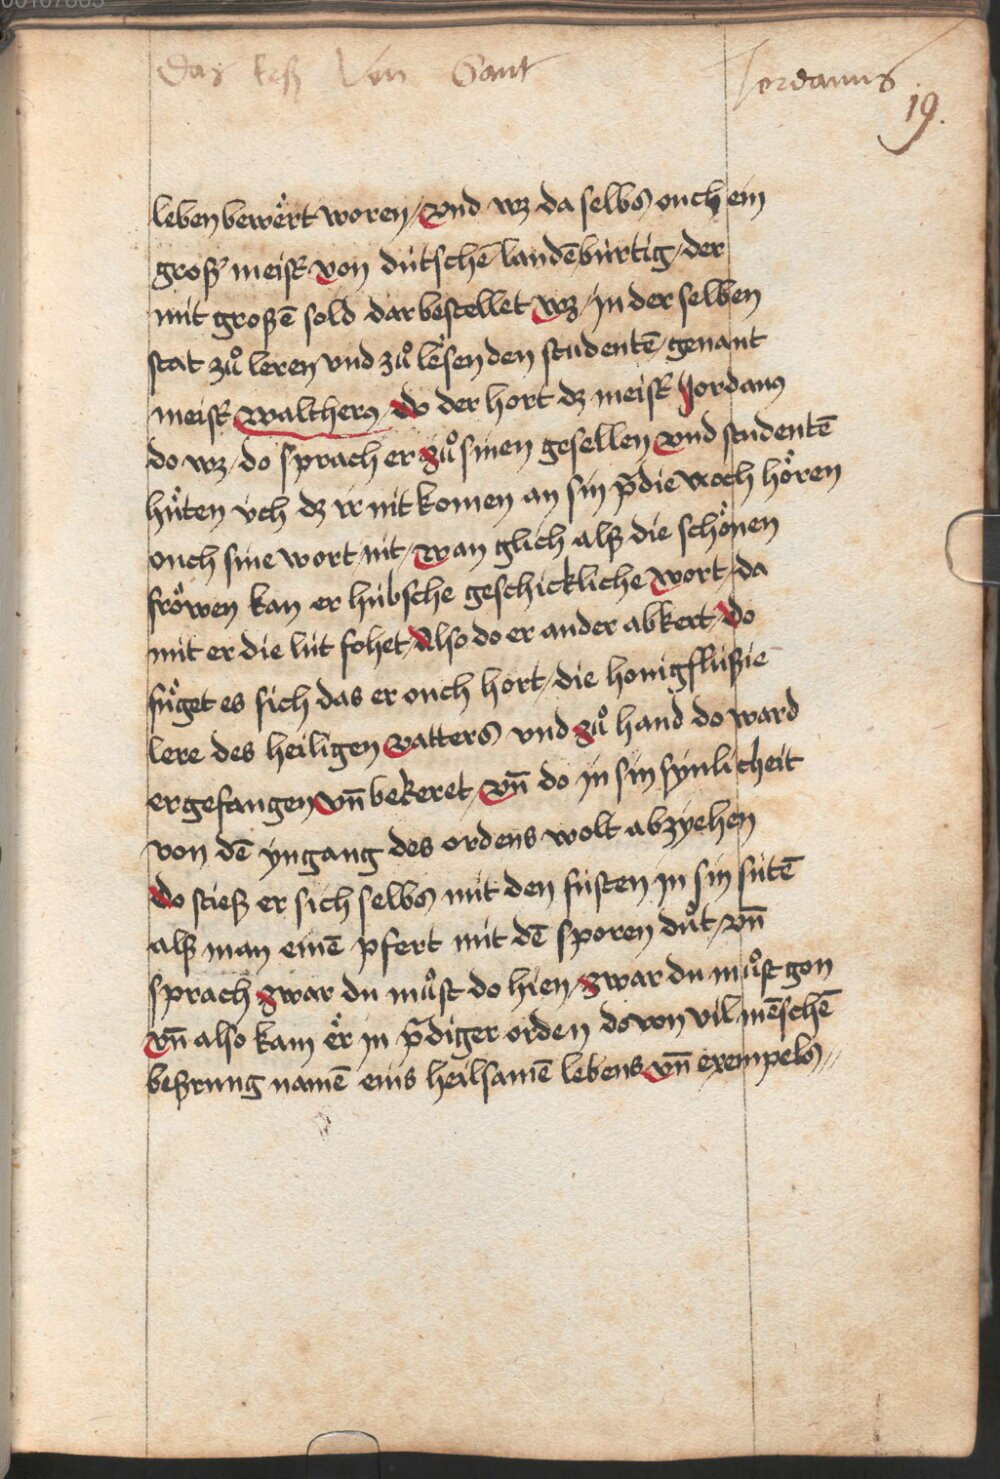 Das erst Von Sant Jordanus
19.
leben bewërt woren / Vnd wz da selbs ouch ein
groß meistʼ von dútschē landē búrtig / der
mit großē sold dar bestellet wz / in der selben
stat zuͦ leren vnd zuͦ lesen den studentē / genant
meistʼ waltherꝰ / do der hort dz meistʼ Jordanꝰ
do wz / do sprach er zuͦ sinen gesellen vnd studentē
huͤten úch dz ir nit komen an sin p̄die noch hoͤren
ouch sine wort nit / wan glich alß die schoͤnen
froͤwen kan er húbsche geschickliche wort / da
mit er die lút fohet / Also do er ander abkert / do
fuͤget es sich das er ouch hort / die honigflússie
lere des heiligen vatters vnd zuͦ hand do ward
er gefangen vn̄ bekeret / vn̄ do in sin synlicheit
von dē yngang des ordens wolt abzyehen
do stieß er sich selbs mit den fústen in sin sitē
alß man einē pfert mit dē sporen duͦt / vn̄
sprach zwar du muͦst do hien / zwar du muͦst gon
vn̄ also kam ër in p̄diger orden do von vil mēschē
beßrung namē eins heilsamē lebens vn̄ exempels //